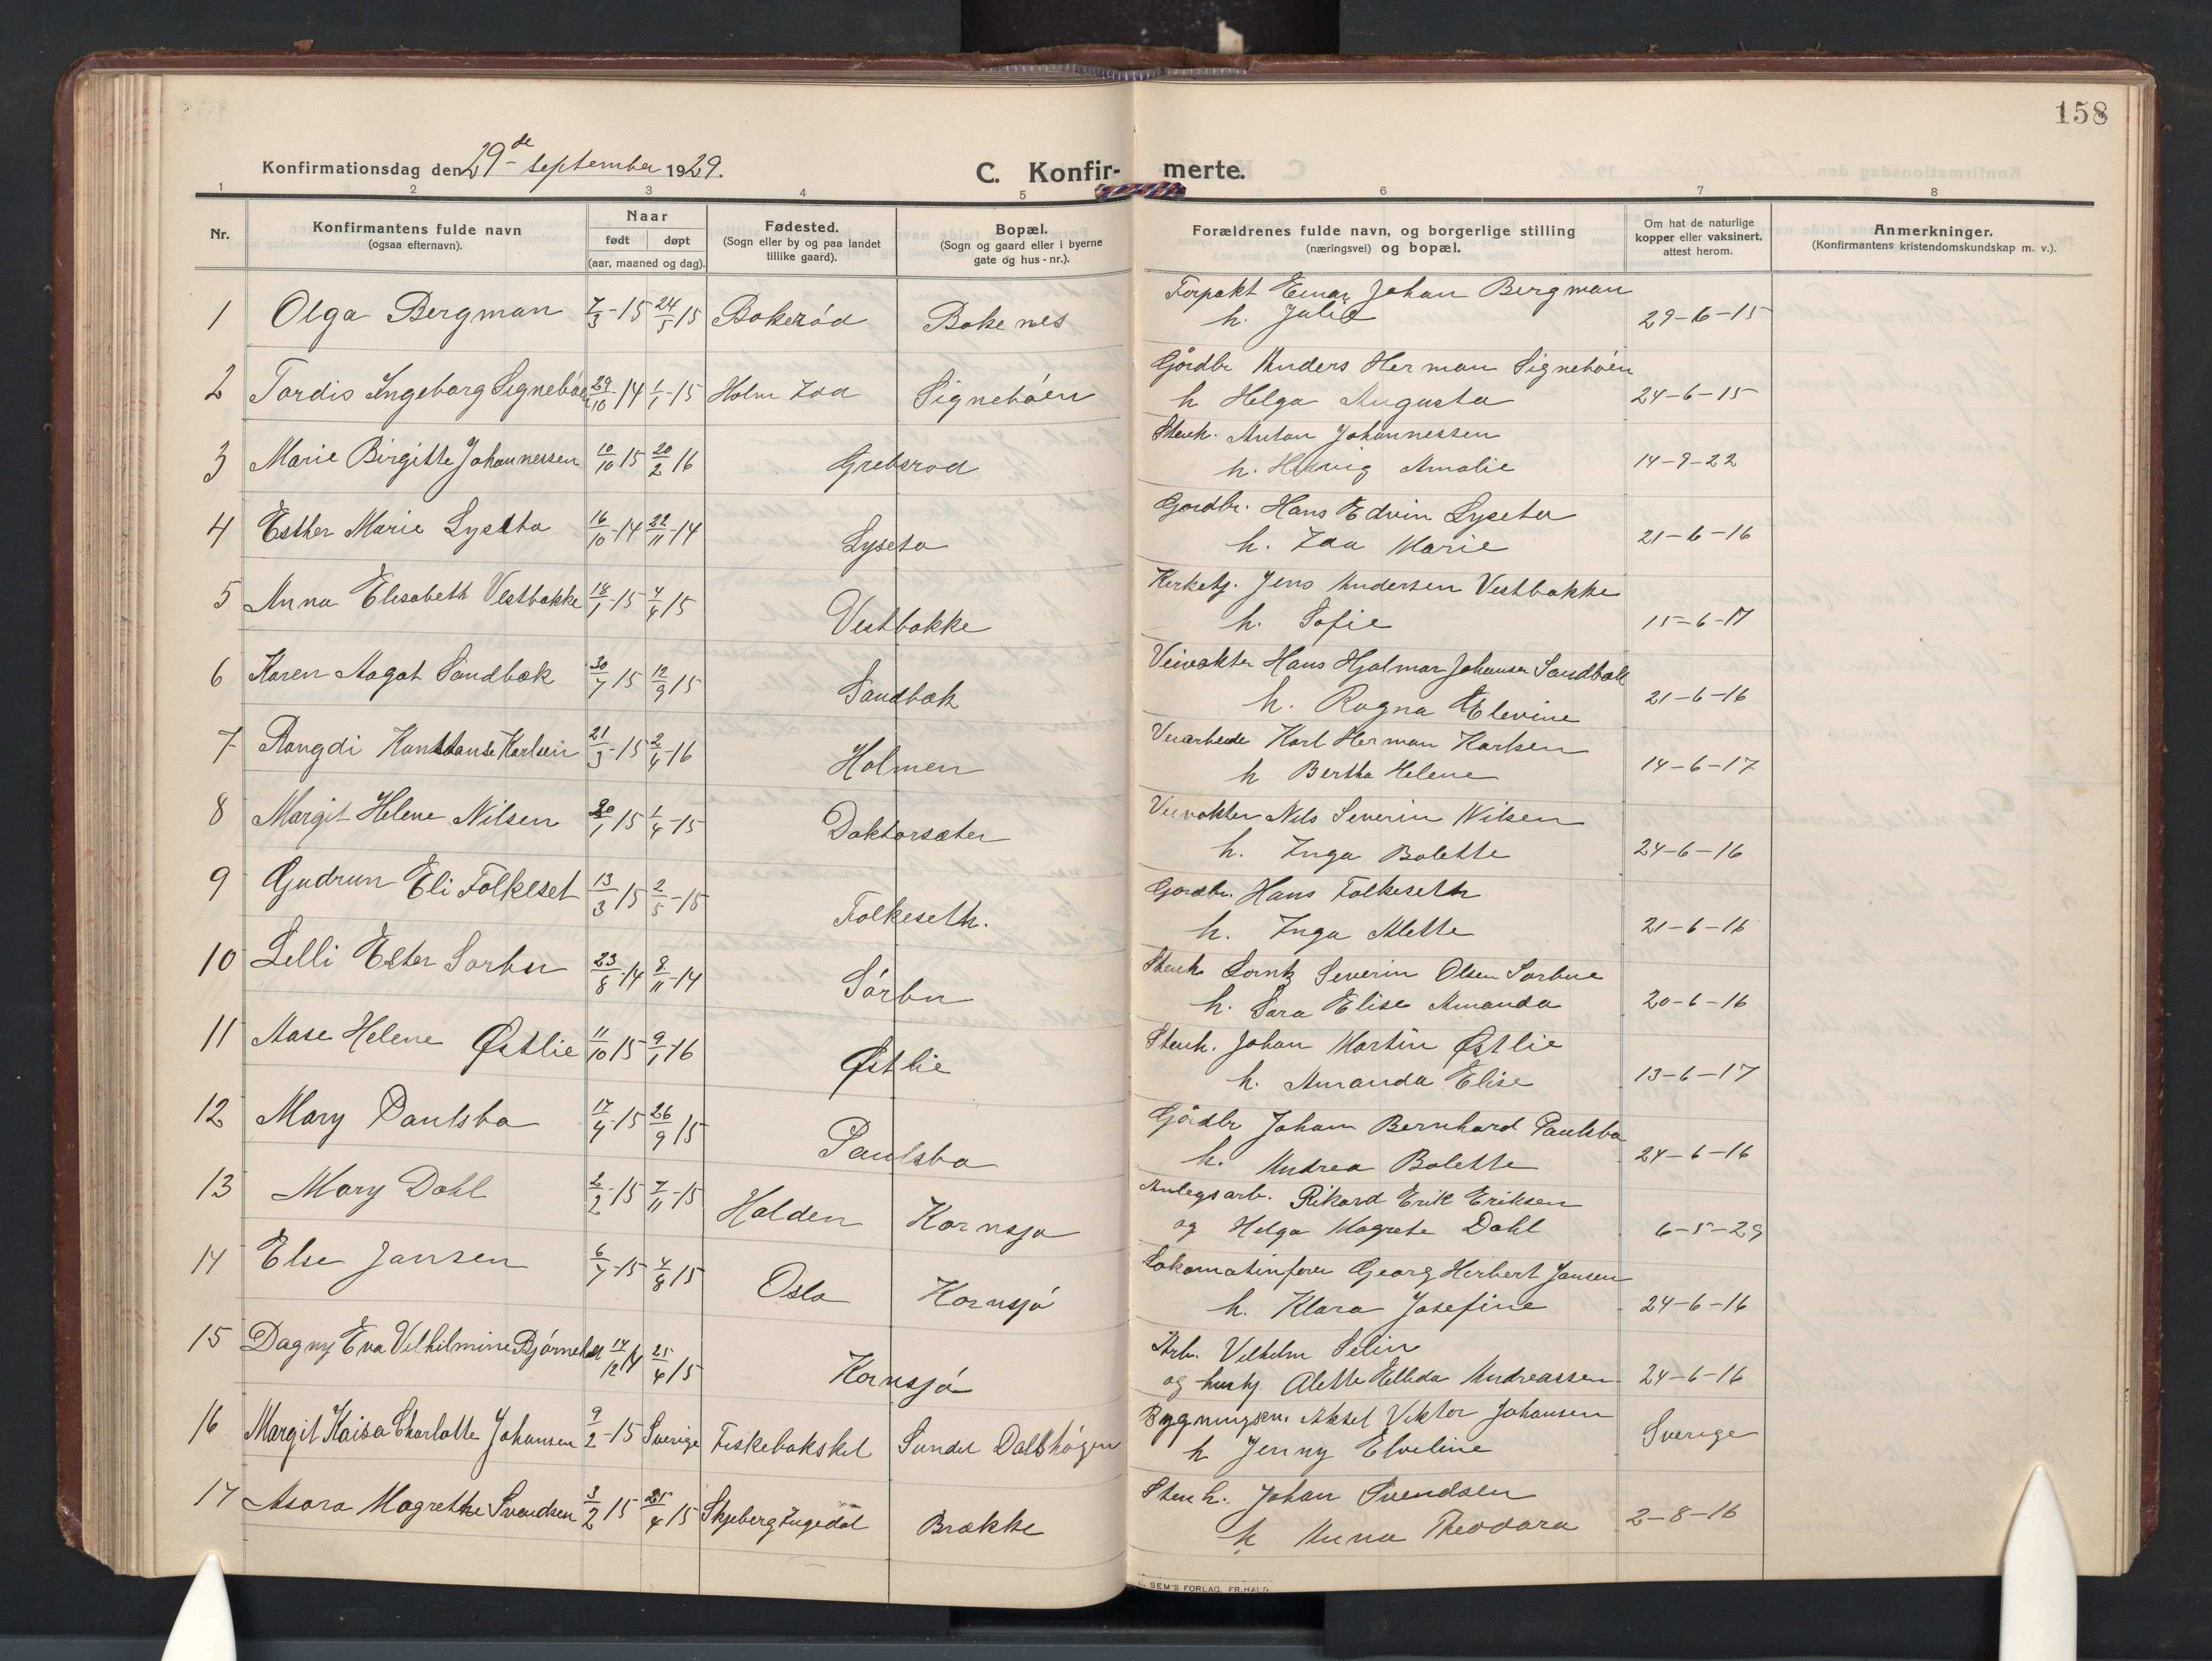 158
Konfirmationsdag den 29de september 1929.
C. Konfir-merte.
1 2 3 4 5 6 7 8
Nr.
Konfirmantens fulde navn
(ogsaa efternavn).
Naar
født døpt
(aar, maaned og dag).
Fødested.
(Sogn eller by og paa landet
tillike gaard).
Bopæl.
(Sogn og gaard eller i byerne
gate og hus-nr.).
Forældrenes fulde navn, og borgerlige stilling
(næringsvei) og bopæl.
Om hat de naturlige
kopper eller vaksinert,
attest herom.
Anmerkninger.
(Konfirmantens kristendomskundskap m. v.).
1 Olga Bergman 7/3-15 24/5 15 Bakerød Bakenes
Forpakt Einar Johan Bergman
h. Julie 29-6-15
2 Tordis Ingeborg Signebøen 29/10-14 1/1-15 Holm Idd Signebøen
Gårdbr Anders Herman Signebøen
h Helga Augusta 24-6-15
3 Marie Birgitte Johannessen 10/10 15 20/2 16 Grebsrød
Stenh. Anton Johannessen
h. Hervig Amalie 14-9-22
4 Esther Marie Lyseto 16/10-14 22/11-14 Lyseto
Gardbr. Hans Edvin Lyseto
h. Ida Marie 21-6-16
5 Anna Elisabeth Vestbakke 18/1-15 4/4 15 Vestbakke
Kirketj. Jens Andersen Vestbakke
h. Sofie 15-6-17
6 Karen Aagot Sandbæk 30/7 15 12/9 15 Sandbæk
Veivakter Hans Hjalmar Johansen Sandbæk
h. Ragna Elevine 21-6-16
7 Rangdi Konstanse Karlsen 21/3-15 2/4-16 Holmen
Veiarbeide Karl Herman Karlsen
h Bertha Helene 14-6-17
8 Margit Helene Nilsen 20/1 15 1/4-15 Doktorsæter
Veivakter Nils Severin Nilsen
h. Inga Bolette 24-6-16
9 Gudrun Eli Folkeset 13/3 15 2/5-15 Folkeseth.
Gardbr. Hans Folkeseth
h. Inga Alette 21-6-16
10 Lilli Ester Sørbu 23/8-14 8/11-14 Sørbu
Stenh Lorntz Severin Olsen Sørbue
h. Sara Elise Amanda 20-6-16
11 Aase Helene Østlie 11/10 15 9/1-16 Østlie
Stenh. Johan Martin Østlie
h. Amanda Elise 13-6-17
12 Mary Paulsbo 17/4-15 26/9 15 Paulsbo
Gårdbr Johan Bernhard Paulsbo
h. Andrea Bolette 24-6-16
13 Mary Dahl 2/2-15 7/11-15 Halden Kornsjø
Anlegsarb. Rikard Erik Eriksen
og Helga Magrete Dahl 6-5-29
14 Else Jansen 6/7-15 4/8 15 Oslo Kornsjø
Lokomotivfører Georg Herbert Jansen
h. Klara Josefine 24-6-16
15 Dagny Eva Vilhilmine 14/12 14 25/4 15 Kornsjø
Arb. Vilhelm Selin
og hustj. Alette Ellida Andreassen 24-6-16
16 Margit Kaisa Charlotte Johansen 9/2-15 Sverige Fiskebakskil Sundet Dalshøgen
Bygningsn. Aksel Viktor Johansen
h Jenny Elveline Sverige
17 Asora Magrethe Svendsen 3/2 15 25/4 15 Skjeberg Ingedal Brække
Stenh. Johan Svendsen
h Anna Theodora 2-8-16
SEM'S FORLAG, FR.HALD